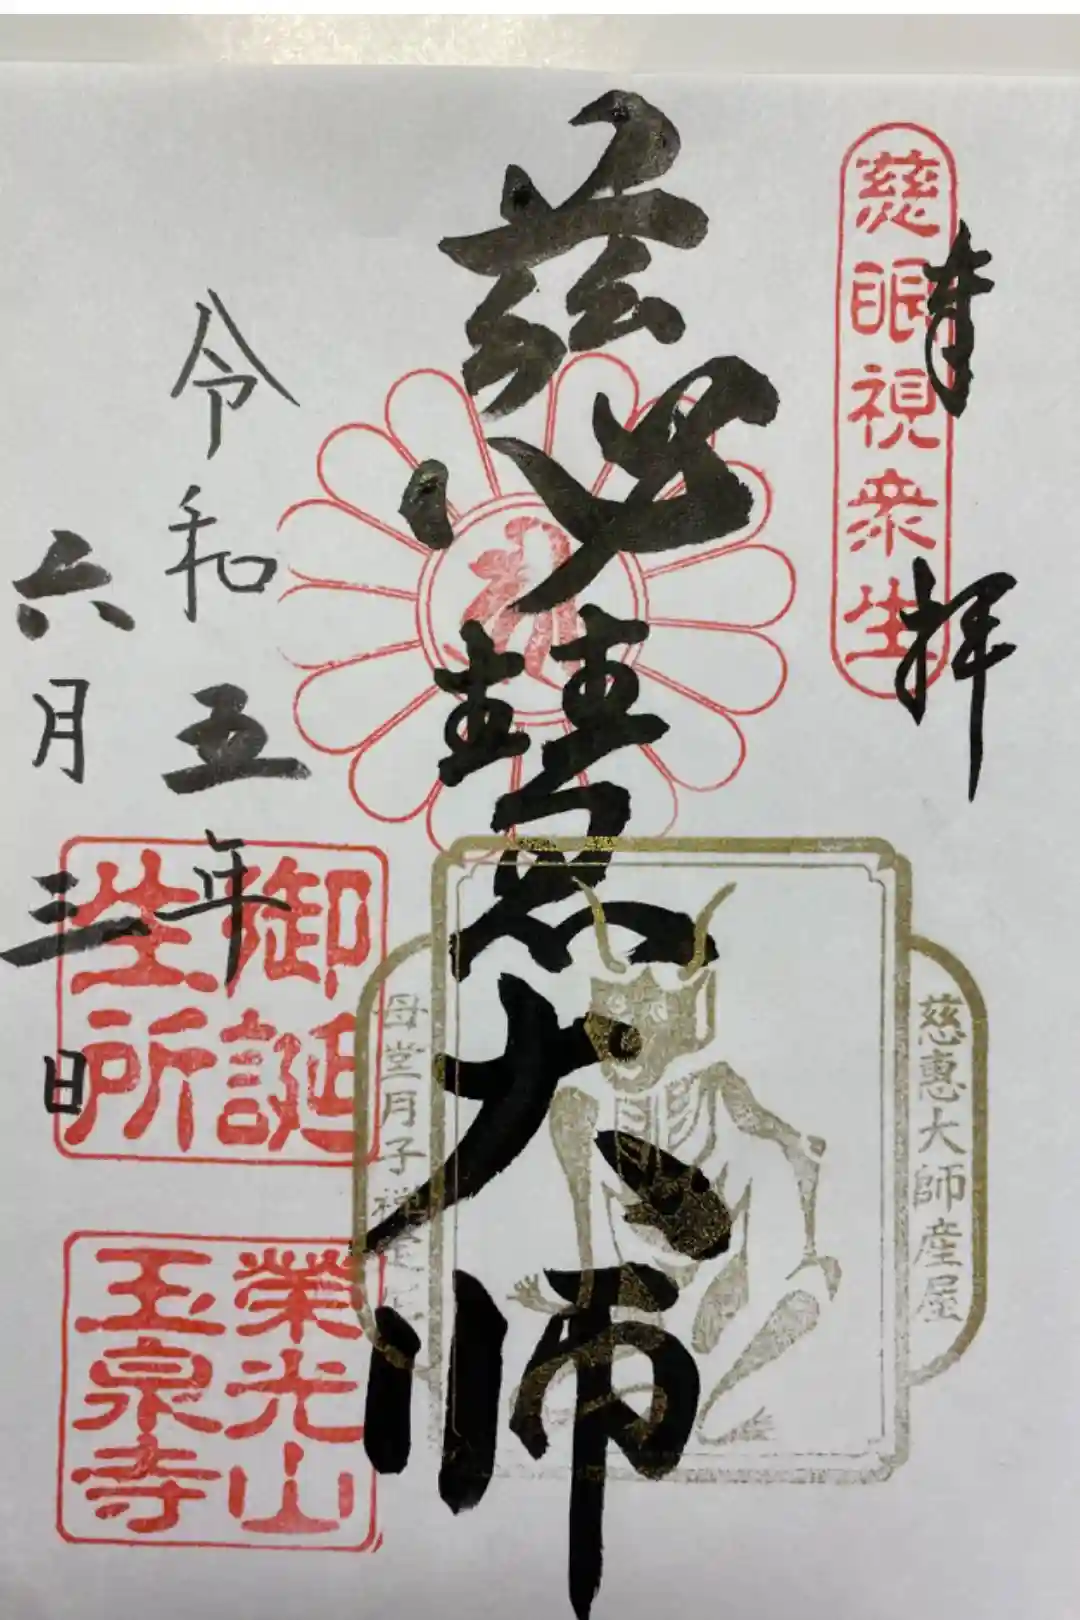 奉拝
慈眼視衆生
慈慧大師
慈恵大師産屋
母堂月子禅定尼
令和五年
六月三日
御誕
生所
榮光山
玉泉寺